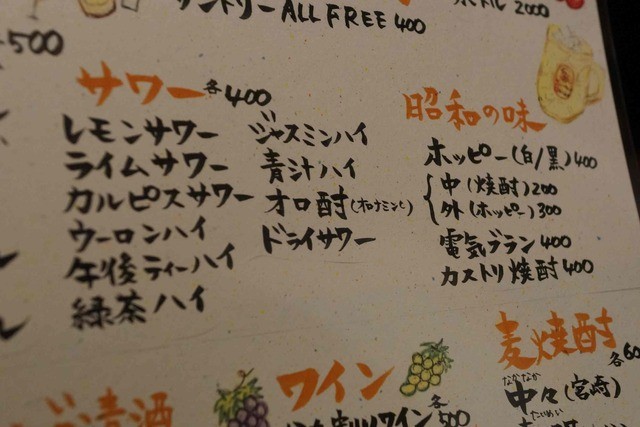 サントリーALL FREE 400
ボトル 2000
500
サワー 各400
レモンサワー
ライムサワー
カルピスサワー
ウーロンハイ
午後ティーハイ
緑茶ハイ
ジャスミンハイ
青汁ハイ
オロ酎(オロナミンC)
ドライサワー
昭和の味
ホッピー(白/黒)400
中(焼酎)200
外(ホッピー)300
電気ブラン 400
カストリ焼酎 400
麦焼酎 各60
なかなか
中々(宮崎)
たいめい
ワイン
ワイン 各500
清酒